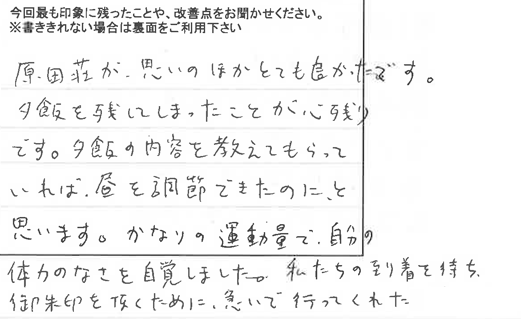 今回最も印象に残ったことや、改善点をお聞かせください。
※書ききれない場合は裏面をご利用下さい
原田荘が、思いのほかとても良かったです。
夕飯を残してしまったことが心残り
です。夕飯の内容を教えてもらって
いれば、昼を調節できたのに、と
思います。かなりの運動量で、自分の
体力のなさを自覚しました。私たちの到着を待ち、
御朱印を頂くために、急いで行ってくれた